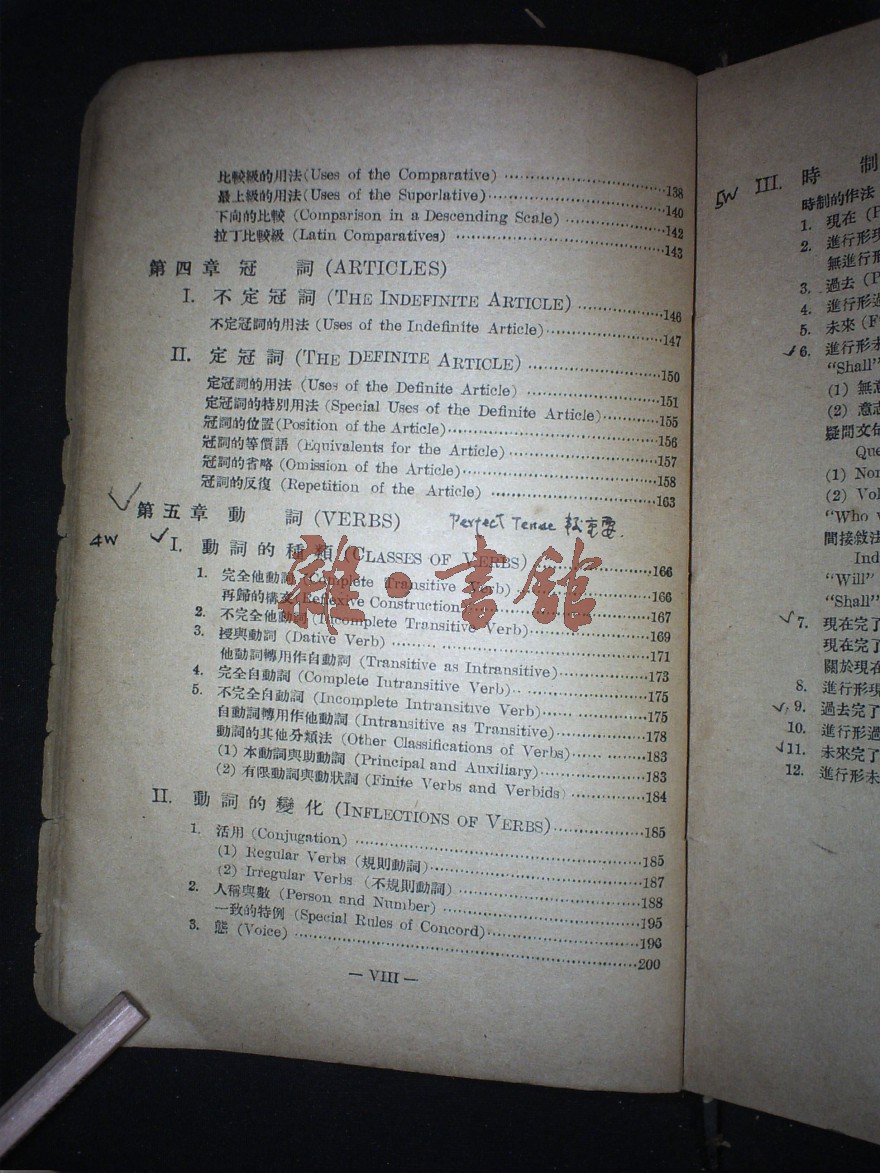 比較級的用法(Uses of the Comparative) ………138
最上級的用法(Uses of the Superlative)………140
下向的比較 (Comparison in a Descending Scale) ………142
拉丁比較級 (Latin Comparatives) ………143
第四章 冠 詞 (ARTICLES)
I. 不定冠詞 (THE INDEFINITE ARTICLE) ………146
不定冠詞的用法 (Uses of the Indefinite Article)………147
II. 定冠詞 (THE DEFINITE ARTICLE) ………150
定冠詞的用法 (Uses of the Definite Article) ………151
定冠詞的特別用法 (Special Uses of the Definite Article)………155
冠詞的位置(Position of the Article)………156
冠詞的等價語 (Equivalents for the Article)………157
冠詞的省略 (Omission of the Article)………158
冠詞的反復 (Repetition of the Article) ………163
第五章 動 詞 (VERBS) Perfect Tense 較重要.
4W I. 動詞的種類 (CLASSES OF VERBS)………166
1. 完全他動詞 (Complete Transitive Verb)………166
再歸的構文(Reflexive Construction)………167
2. 不完全他動詞 (Incomplete Transitive Verb)………169
3. 授與動詞 (Dative Verb) ………171
他動詞轉用作自動詞 (Transitive as Intransitive)………173
4. 完全自動詞 (Complete Intransitive Verb)………175
5. 不完全自動詞 (Incomplete Intransitive Verb)………175
自動詞轉用作他動詞 (Intransitive as Transitive)………178
動詞的其他分類法 (Other Classifications of Verbs)………183
(1) 本動詞與助動詞 (Principal and Auxiliary)………183
(2) 有限動詞與動狀詞 (Finite Verbs and Verbids)………184
II. 動詞的變化 (INFLECTIONS OF VERBS)………185
1. 活用 (Conjugation) ………185
(1) Regular Verbs (規則動詞)………187
(2) Irregular Verbs (不規則動詞) ………188
2. 人稱與數 (Person and Number) ………195
一致的特例 (Special Rules of Concord)………196
3. 態 (Voice) ………200
— VIII —
雜·書館
5W III. 時 制
時制的作法
1. 現在 (P
2. 進行形現
無進行形
3. 過去 (P
4. 進行形過
5. 未來 (F
6. 進行形未
"Shall"
(1) 無意
(2) 意志
疑問文句
Que
(1) Non
(2) Vol
"Who v
間接敘法
Ind
"Will"
"Shall"
7. 現在完了
現在完了
關於現在
8. 進行形現
9. 過去完了
10. 進行形過
11. 未來完了
12. 進行形未